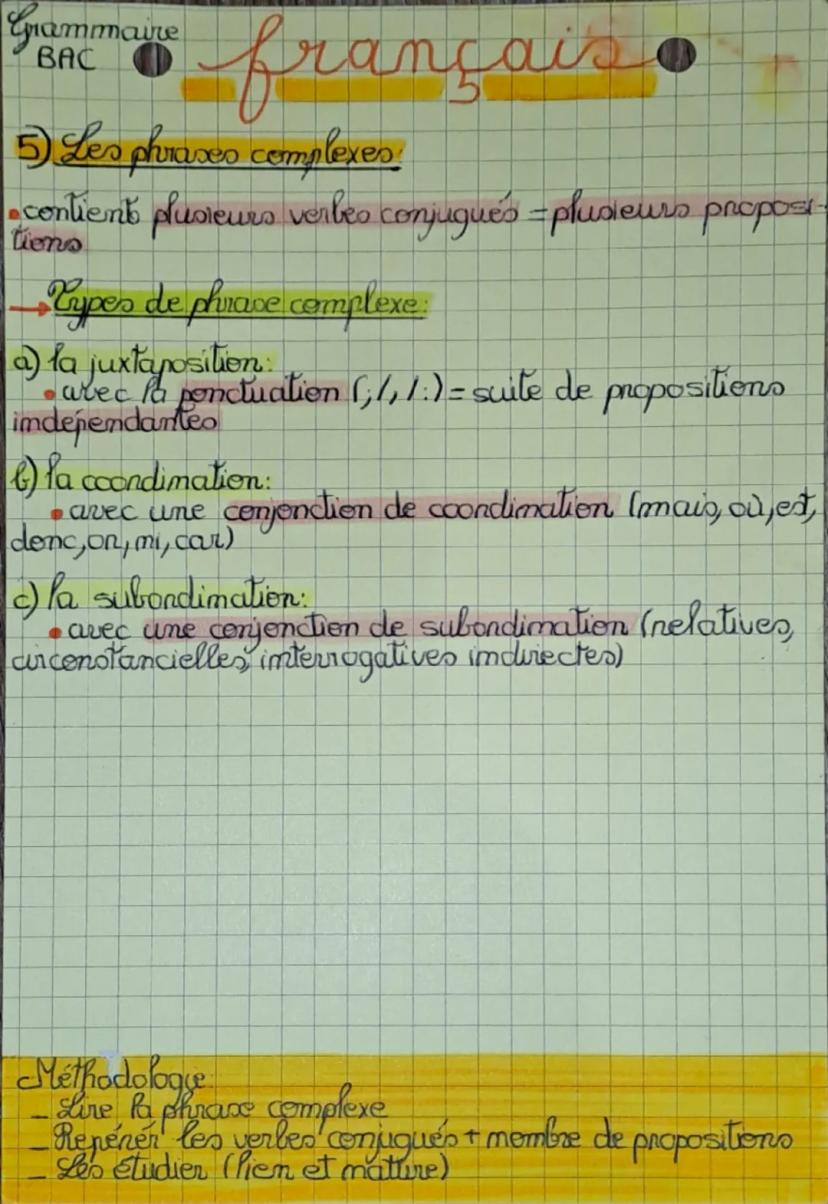 Grammaire
BAC
français
5) Les phrases complexes:
• contient plusieurs verbes conjugués = plusieurs proposi-
tions
→ Types de phrase complexe:
a) la juxtaposition:
• avec la ponctuation (;/,/:) = suite de propositions
indépendantes
b) la coordination:
• avec une conjonction de coordination (mais, où, est,
donc, or, ni, car)
c) la subordination:
• avec une conjonction de subordination (relatives,
circonstancielles, interrogatives indirectes)
Méthodologie:
- Lire la phrase complexe
- Repérér les verbes conjugués + nombre de propositions
- Les étudier (lien et nature)